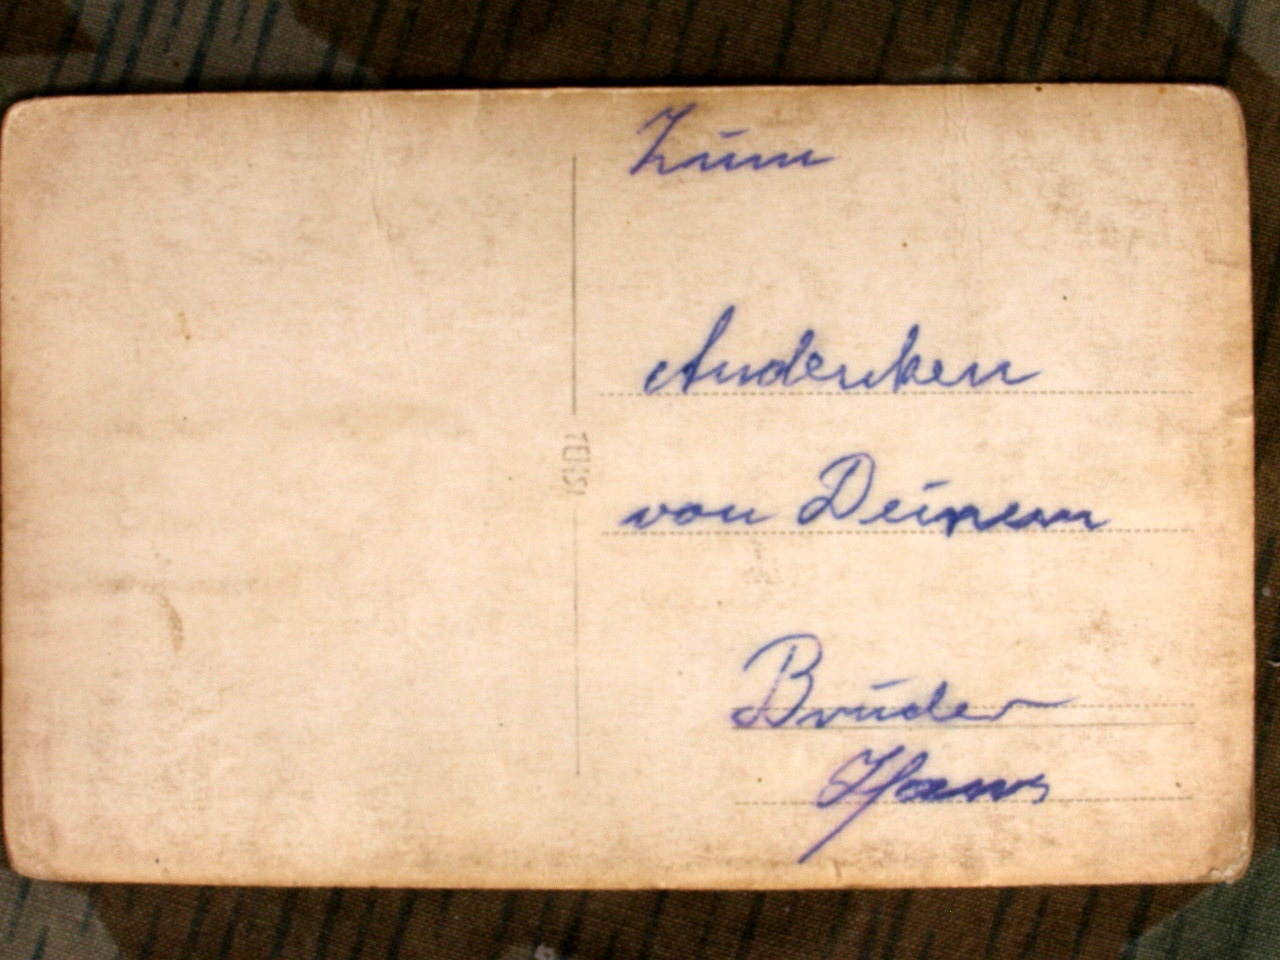 Zum
Andenken
von Deinem
Bruder
Hans